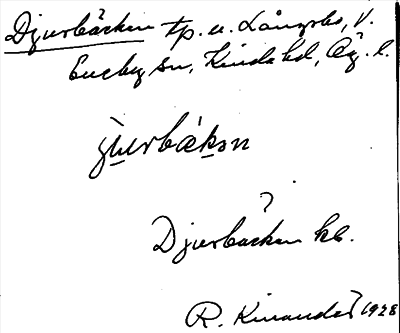 Djurbäcken tp. u. Långsbo, V.
Eneby sn, Kinda hd, Ög. l.
ju̲rbäk̲ən
?
Djurbäcken kb.
R. Kinander 1928